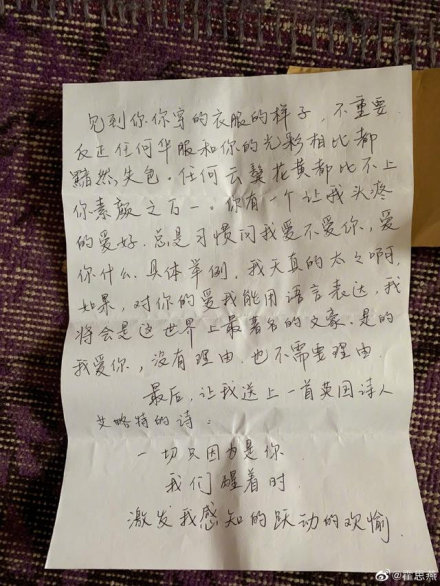 见到你你穿的衣服的样子，不重要
反正任何华服和你的光彩相比都
黯然失色。任何云鬓花黄都比不上
你素颜之万一。你有一个让我头疼
的爱好。总是习惯问我爱不爱你，爱
你什么。具体举例，我天真的太太啊，
如果，对你的爱我能用语言表达，我
将会是这世界上最著名的文豪。是的
我爱你，没有理由，也不需要理由。
最后，让我送上一首英国诗人
艾略特的诗。
一切只因为是你
我们醒着时
激发我感知的跃动的欢愉
@霍思燕